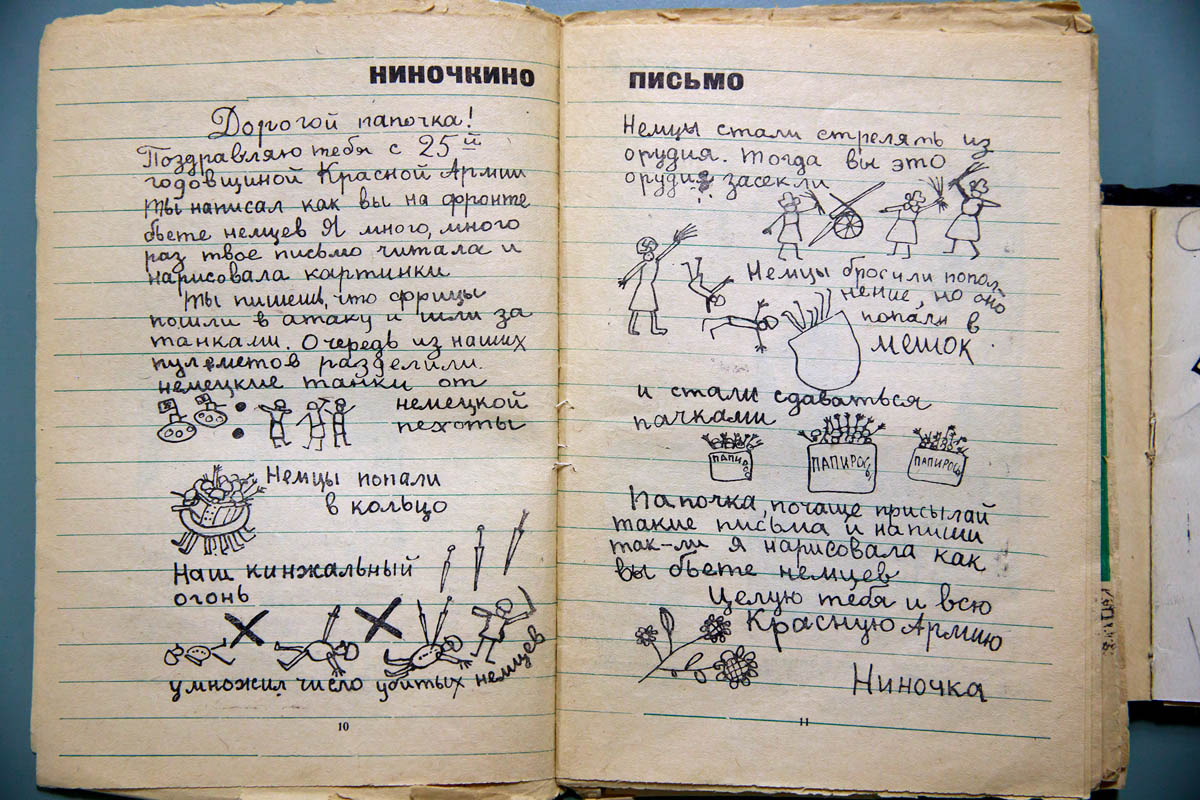 НИНОЧКИНО
Дорогой папочка!
Поздравляю тебя с 25й
годовщиной Красной Армии
Ты написал как вы на фронте
бьете немцев Я много, много
раз твое письмо читала и
нарисовала картинки
Ты пишешь, что фрицы
пошли в атаку и шли за
танками. Очередь из наших
пулеметов разделили
немецкие танки от
немецкой
пехоты
Немцы попали
в кольцо
Наш кинжальный
огонь
умножил число убитых немцев
10
ПИСЬМО
Немцы стали стрелять из
орудия. Тогда вы это
орудие засекли
Немцы бросили попол-
нение, но оно
попали в
мешок
и стали сдаваться
пачками
ПАПИРОС
ПАПИРОСЫ
ПАПИРОСЫ
Папочка, почаще присылай
такие письма и напиши
так-ли я нарисовала как
вы бьете немцев
Целую тебя и всю
Красную Армию
Ниночка
11